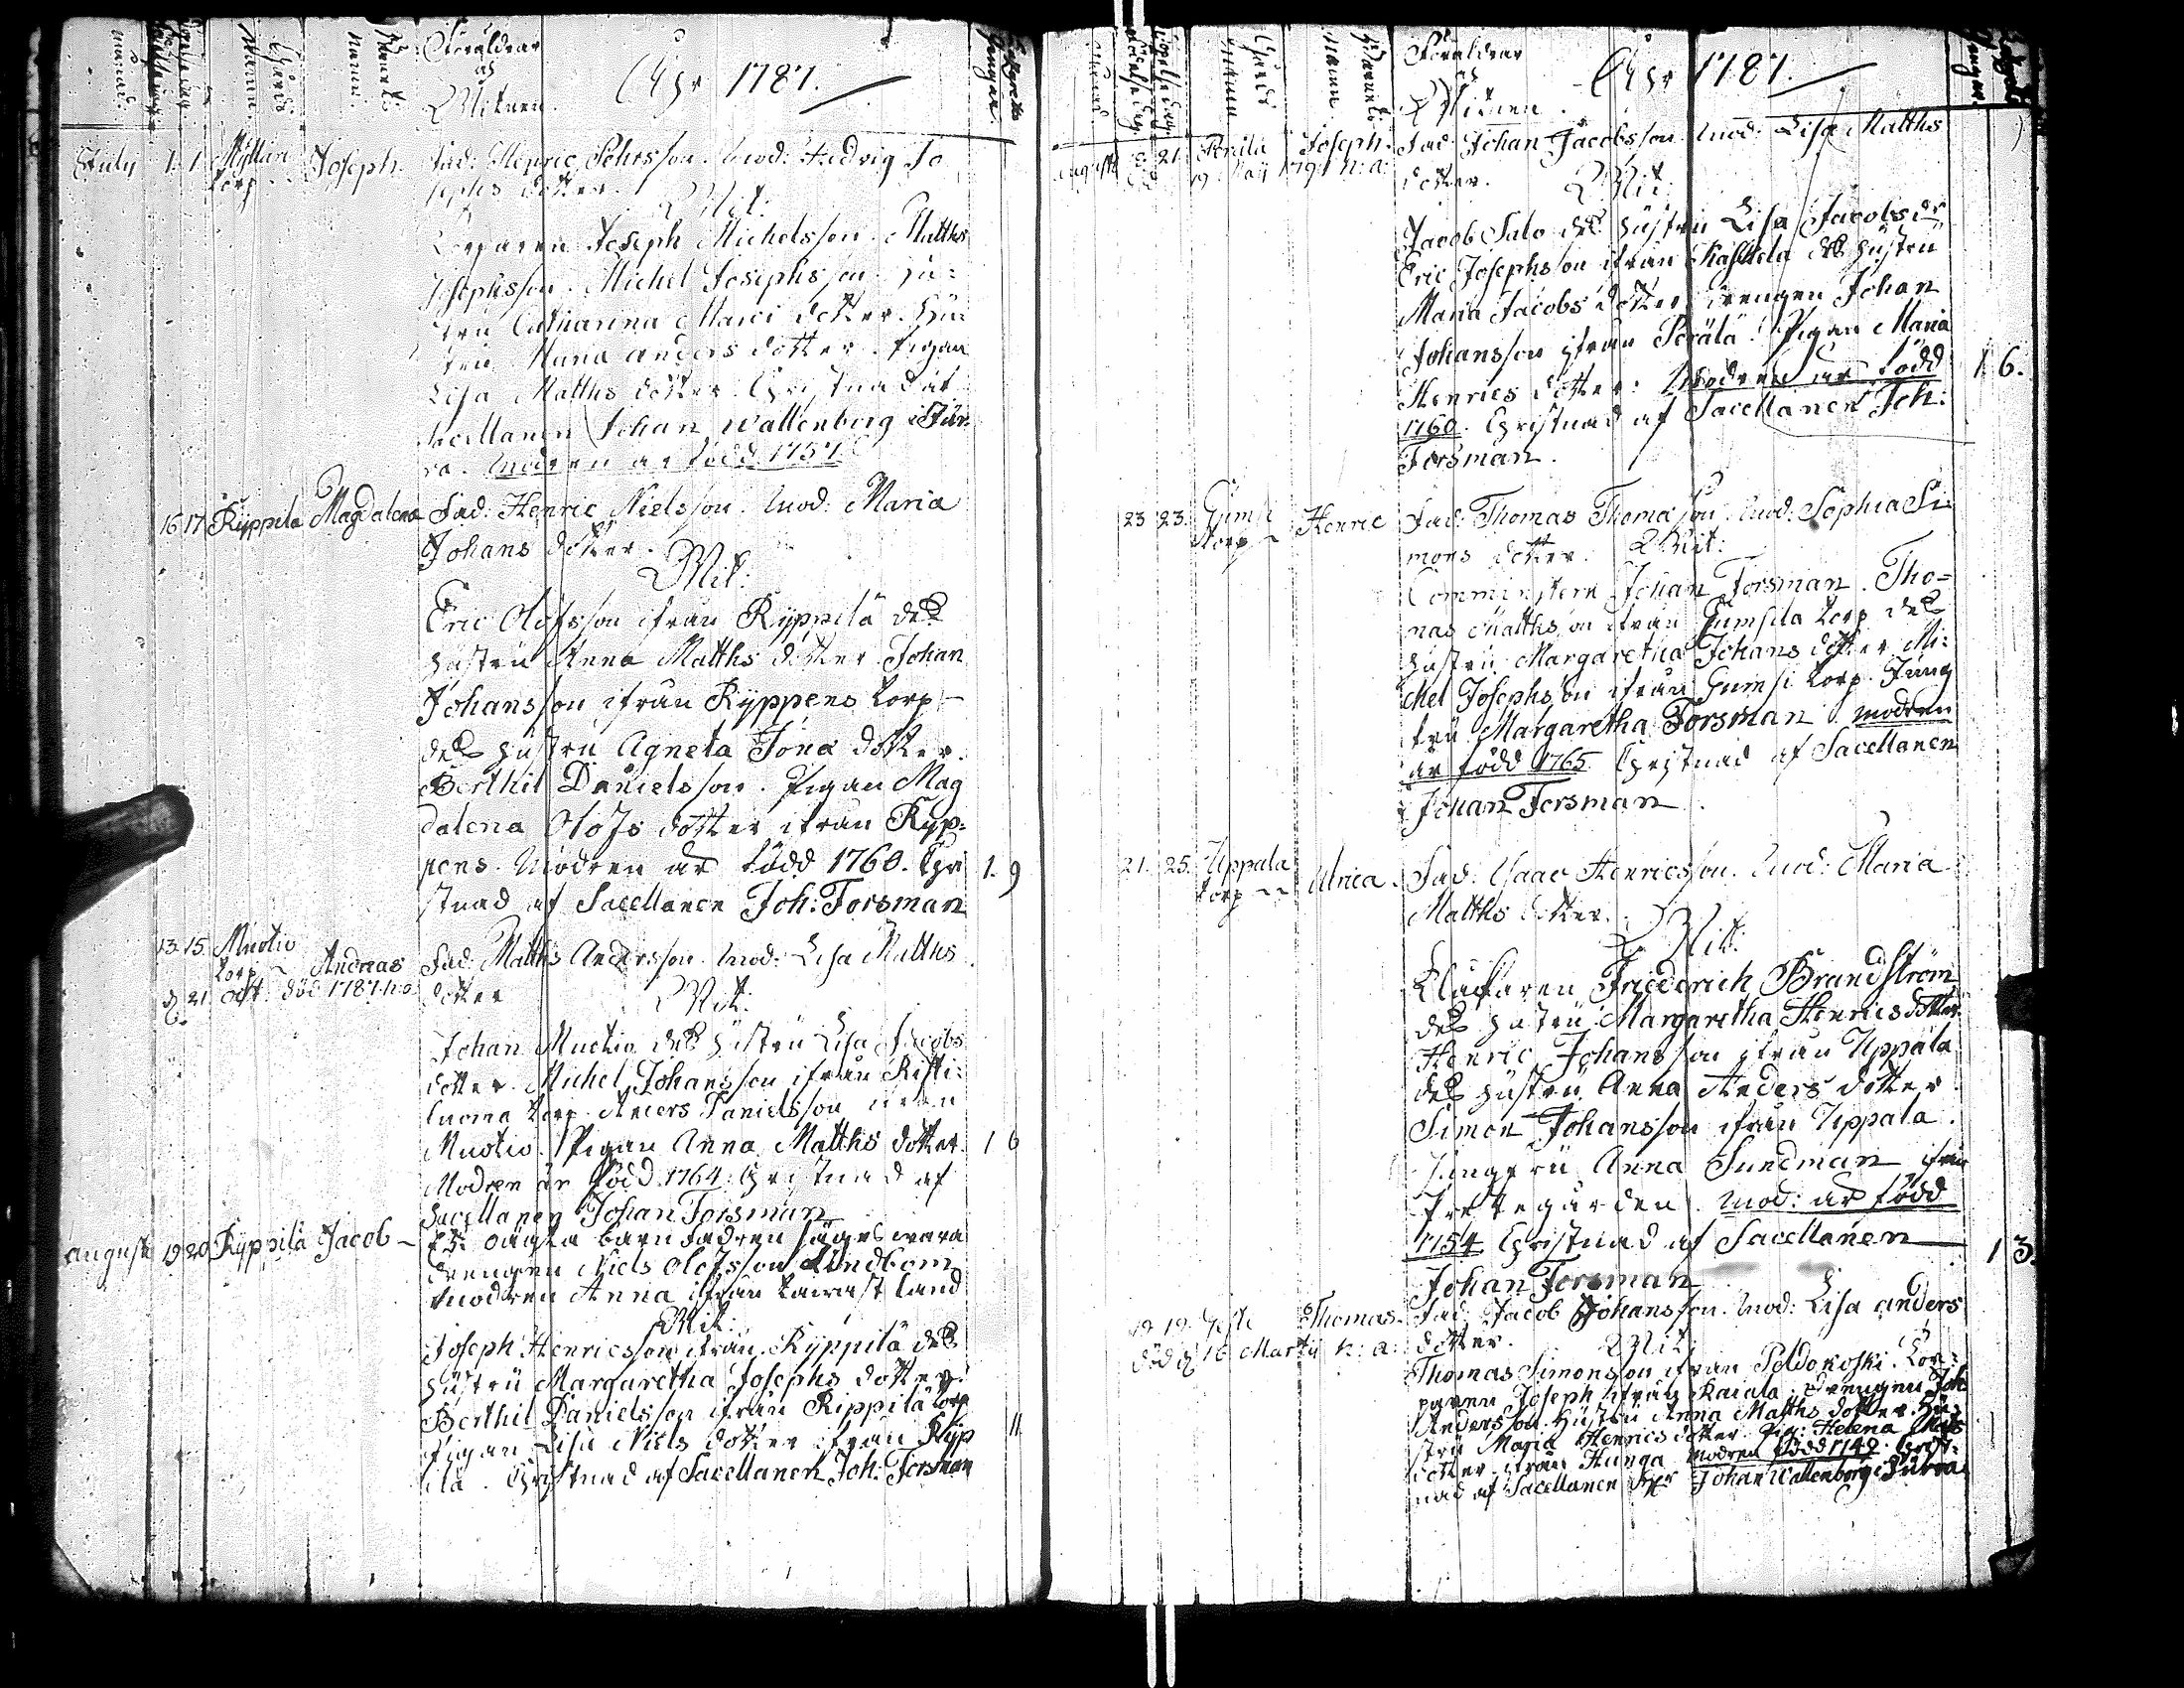 Föräldrar
och
Witnen.
Åhr 1787.
July 1. 1. Ryttari torp Joseph. Fad: Henric Pehrsson. Mod: Hedvig Jo
sephs dotter.
Wit:
Torparen Joseph Michelsson. Matths
Josephsson. Michel Josephsson. Hu:
stru Catharina Marci dotter. Hu:
stru Maria Anders dotter. Pigan
Lisa Matths dotter. Christnad af
Sacellanen Johan Wallenborg i Jur
va. Modren är född 1757.
16 17 Ryppila Magdalena Fad: Henric Nielsson. Mod: Maria
Johans dotter.
Wit:
Eric Olofsson ifrån Ryppilä des
hustru Anna Matths dotter. Johan
Johansson ifrån Ryppens torp
des hustru Agneta Jona dotter.
Berthil Danielsson. Pigan Mag
dalena Olofs dotter ifrån Ryp:
pens. Modren är född 1760. Chri 1. 9
stnad af Sacellanen Joh: Forsman
13. 15. Muotio torp Andreas Fad: Matths Andersson. Mod: Lisa Matths
d. 21. Oct. död 1787. h.a. dotter
Wit:
Johan Muotio des hustru Lisa Jacobs
dotter. Michel Johansson ifrån Risti:
luoma torp. Anders Danielsson
Muotio. Pigan Anna Matths dotter. 1 6
Modren är född 1764. Christnad af
Sacellanen Johan Forsman
Augusti 19 20 Ryppilä Jacob Et oägta barn fadren säges wara
drengen Niels Olofsson Lindbom
modren Anna ifrån Tavastland
Wit:
Joseph Henricsson ifrån Ryppilä des
hustru Margaretha Josephs dotter.
Berthil Danielsson ifrån Rippilä torp
Pigan Lisa Niels dotter ifrån Ryp 11
ila. Christnad af Sacellanen Joh: Forsman
Föräldrar
och
Witnen.
Åhr 1787.
Augusti 21. Perälä Joseph. Fad: Johan Jacobsson. Mod: Lisa Matths
19 Maij 1791 h: a: dotter. Wit:
Jacob Salo des hustru Lisa Jacobs dr
Eric Josephsson ifrån des hustru
Maria Jacobs dotter drengen Johan
Johansson ifrån Perälä. Pigan Maria
Henrics dotter: Modren är född 1 6.
1760. Christnad af Sacellanen Joh:
Forsman.
23 23. Gumsi torp Henric Fad: Thomas Thomasson. Mod: Sophia Si
mons dotter. Wit:
Comministern Johan Forsman. Tho=
mas Matthsson ifrån Gumsila torp des
hustru Margaretha Johans dotter. Mi:
chel Josephsson ifrån Gumsi torp. Jung
fru Margaretha Forsman. Modren
är född 1765. Christnad af Sacellanen
Johan Forsman.
21. 25. Uppala torp Ulrica. Fad: Isaac Henricsson. Mod: Maria
Matths dotter.
Wit:
Klockaren Friederich Brandström
des hustru Margaretha Henrics dotter.
Henric Johansson ifrån Uppala
des hustru Anna Anders dotter
Simon Johansson ifrån Uppala.
Jungfru Anna Sundman ifrån
Prestegården. Mod: är född
1754 Christnad af Sacellanen 1 3.
Johan Forsman
19. 19. Thomas. Fad: Jacob Johansson. Mod: Lisa Anders
död d. 16 Martii h: a: dotter. Wit:
Thomas Simonsson ifrån Peldokoski. Tor:
paren Joseph ifrån Drengen Joh
Andersson. Hustru Anna Matths dotter. Hu:
stru Maria Henrics dotter. Pig: Helena Mats
dotter ifrån Hunga. Modren född 1749. Christ:
nad af Sacellanen Johan Wallenborg i Jurva.